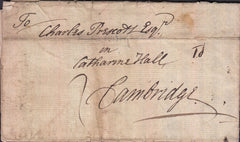 To
Charles Prescott Esqr
in
Catharine Hall
Cambridge